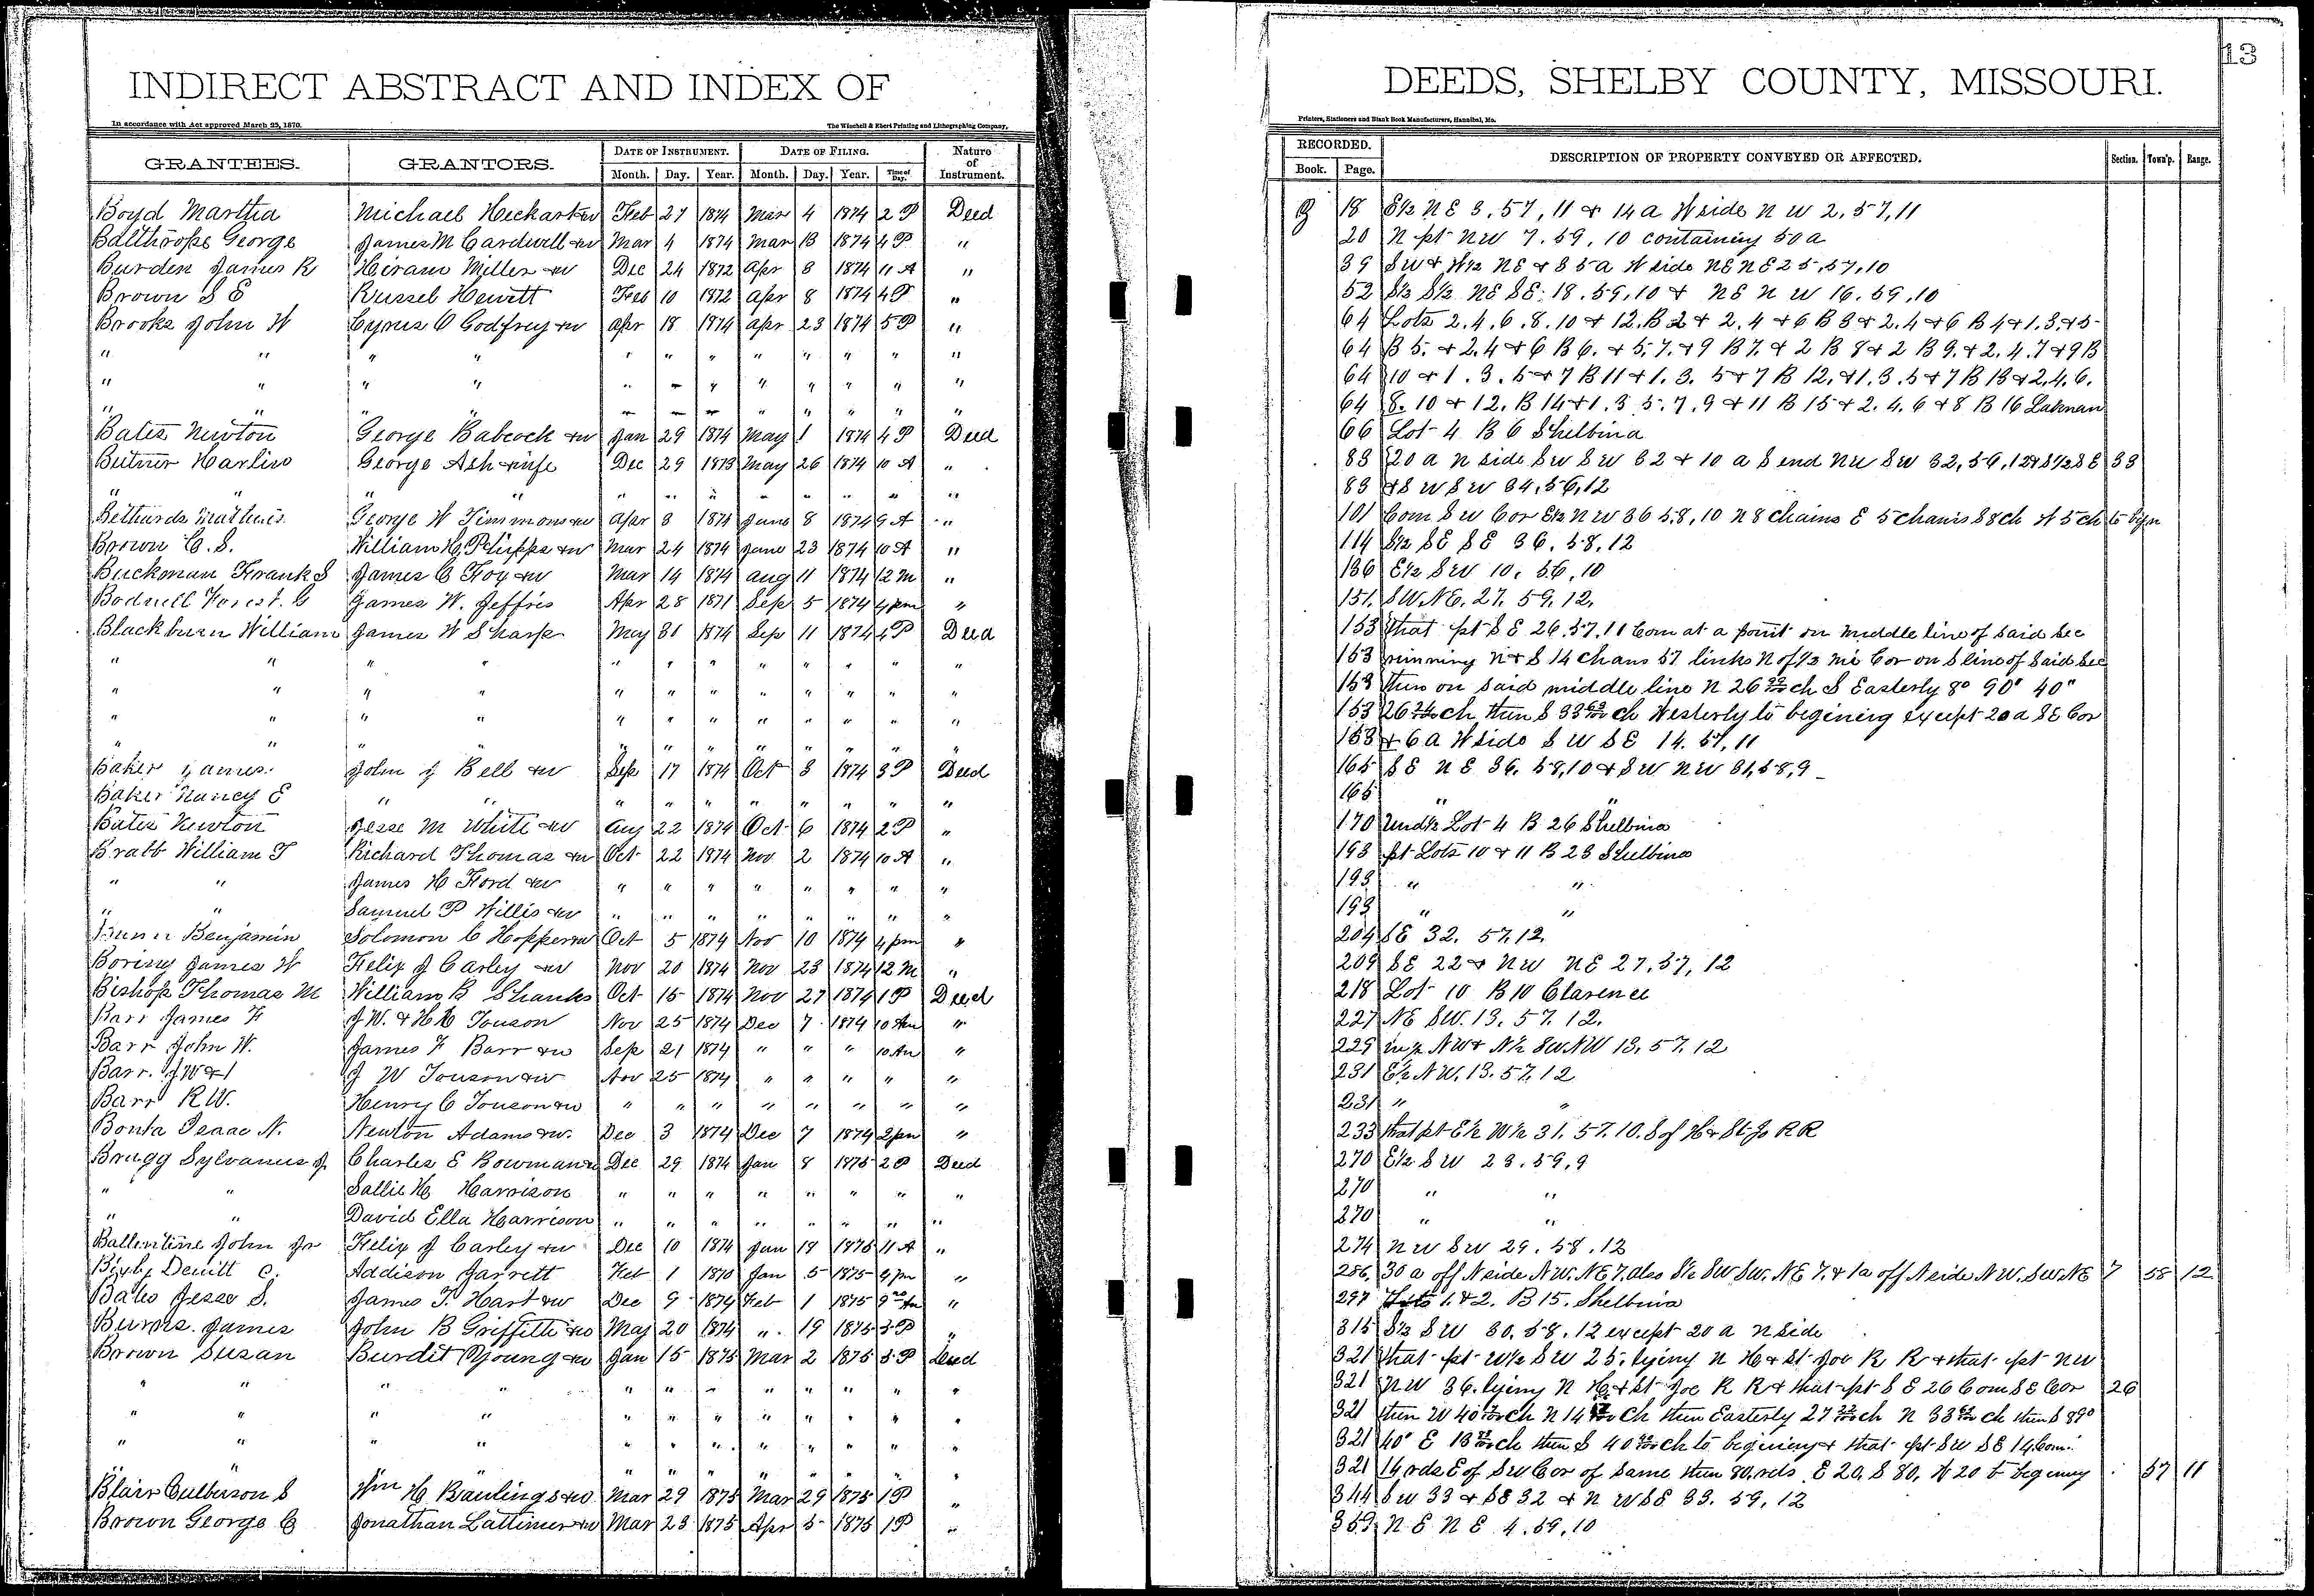 INDIRECT ABSTRACT AND INDEX OF
In accordance with Act approved March 25, 1870.
The Winchell & Ebert Printing and Lithographing Company,
GRANTEES. GRANTORS. DATE OF INSTRUMENT. DATE OF FILING. Nature of Instrument.
Month. Day. Year. Month. Day. Year. Time of Day.
Boyd Martha Michael Heckart &w Feb 27 1874 Mar 4 1874 2 P Deed
Balthrope George James M Cardwell &w Mar 4 1874 Mar 13 1874 4 P "
Burden James R Hiram Miller &w Dec 24 1872 Apr 8 1874 11 A "
Brown S E Russel Hewitt Feb 10 1872 Apr 8 1874 4 P "
Brooks John W Cyrus O Godfrey &w Apr 18 1874 Apr 23 1874 5 P "
" " " " " " " " " " " "
" " " " " " " " " " " "
" " " " " " " " " " " "
Bates Newton George Babcock &w Jan 29 1874 May 1 1874 4 P Deed
Butner Harlin George Ash &wife Dec 29 1873 May 26 1874 10 A "
" " " " " " " " " " " "
Bethards Mathias George W Timmons &w Apr 8 1874 June 8 1874 9 A "
Brown C. S. William H Phipps &w Mar 24 1874 June 23 1874 10 A "
Buckman Frank S James C Foy &w Mar 14 1874 Aug 11 1874 12 M "
Bodwell Forest. G James W. Jeffris Apr 28 1871 Sep 5 1874 4 pm "
Blackburn William James W Sharp May 31 1874 Sep 11 1874 4 P Deed
" " " " " " " " " " " "
" " " " " " " " " " " "
" " " " " " " " " " " "
" " " " " " " " " " "
Baker James. John J Bell &w Sep 17 1874 Oct 3 1874 3 P Deed
Baker Nancy E " " " " " " " " " "
Bates Newton Jesse M White &w Aug 22 1874 Oct 6 1874 2 P "
Brabb William T Richard Thomas &w Oct 22 1874 Nov 2 1874 10 A "
" " James H Ford &w " " " " " " " "
" " Samuel P Willis &w " " " " " " " "
Benjamin Solomon C Hopper &w Oct 5 1874 Nov 10 1874 4 pm "
Boring James W Felix J Carley &w Nov 20 1874 Nov 23 1874 12 M "
Bishop Thomas M William B Shanks Oct 15 1874 Nov 27 1874 1 P Deed
Barr James F J W. & H C Touson Nov 25 1874 Dec 7 1874 10 Am "
Barr John W. James F Barr &w Sep 21 1874 " " " 10 Am "
Barr. J W & J W Touson &w Nov 25 1874 " " " " "
Barr R W. Henry C Touson &w " " " " " " " "
Bonta Isaac N. Newton Adams &w. Dec 3 1874 Dec 7 1874 2 pm "
Bragg Sylvanus J Charles E Bowman Dec 29 1874 Jan 8 1875 2 P Deed
" " Sallie H Harrison " " " " " " " "
" " David Ella Harrison " " " " " " " "
Ballentine John Jr Felix J Carley &w Dec 10 1874 Jan 19 1875 11 A "
Bixby Dewitt C. Addison Jarrett Feb 1 1870 Jan 5 1875 4 pm "
Bates Jesse S. James T. Hart &w Dec 9 1874 Feb 1 1875 "
Burns. James John B Griffith &w May 20 1874 " 19 1875 3 P "
Brown Susan Burdit Young &w Jan 15 1875 Mar 2 1875 3 P Deed
" " " " " " " " " " " "
" " " " " " " " " " " "
" " " " " " " " " " " "
" " " " " " " " " "
Blair Culberson S Wm H Rawlings &w Mar 29 1875 Mar 29 1875 1 P "
Brown George C Jonathan Lattimer &w Mar 23 1875 Apr 5 1875 1 P "
13
DEEDS, SHELBY COUNTY, MISSOURI.
Printers, Stationers and Blank Book Manufacturers, Hannibal, Mo.
RECORDED. DESCRIPTION OF PROPERTY CONVEYED OR AFFECTED. Section. Town'p. Range.
Book. Page.
18 E½ N E 3, 57, 11 & 14 a W side N W 2, 57, 11
20 N pt NW 7. 59, 10 containing 50 a
39 S W & W½ NE & 35 a W side NE NE 25, 57, 10
52 S½ S½ NE SE. 18. 59, 10 & N E N W 16. 59, 10
64 Lots 2. 4. 6. 8. 10 & 12. B 2 & 2. 4 & 6 B 3 & 2. 4 & 6 B 4 & 1. 3. & 5
64 B 5. & 2. 4 & 6 B 6. & 5, 7. & 9 B 7. & 2 B 8 & 2 B 9. & 2. 4. 7 & 9 B
64 10 & 1. 3. 5 & 7 B 11 & 1. 3. 5 & 7 B 12, & 1. 3. 5 & 7 B 13 & 2, 4, 6,
64 8. 10 & 12. B 14 & 1. 3 5. 7. 9 & 11 B 15 & 2. 4. 6 & 8 B 16 Laknan
66 Lot 4 B 6 Shelbina
83 20 a N side S W S W 32 & 10 a S end NW SW 32, 56, 12 & S½ S E 33
83 & S W S W 34, 56, 12
101 Com S W Cor E½ N W 36 58, 10 N 8 chains E 5 chains S 8 ch W 5 ch to begn
114 S½ SE SE 36. 58. 12
136 E½ S W 10. 56, 10
151. S W. N E. 27. 59. 12.
153 that pt S E 26. 57. 11 Com at a point on middle line of said Sec
153 running N & S 14 Chans 57 links N of ½ mi Cor on S line of said Sec
153 then on said middle line N 26 ch S Easterly 8° 90' 40"
153 26 ch then S 33 ch Westerly to begining except 20 a S E Cor
153 & 6 a W side S W S E 14. 57, 11
165 S E N E 36. 58, 10 & S W N W 31, 58, 9
165 " "
170 Und½ Lot 4 B 26 Shelbina
193 pt Lots 10 & 11 B 23 Shelbina
193 " "
193 " "
204 S E 32. 57. 12.
209 S E 22 & N W N E 27, 57, 12
218 Lot 10 B 10 Clarence
227 N E S W. 13. 57. 12.
229 N W & N½ S W N W 13. 57. 12
231 E½ N W. 13. 57. 12
231 " "
233 that pt E½ W½ 31. 57. 10. S of H & St. Jo R R
270 E½ S W 23. 59, 9
270 " "
270 " "
274 N W S W 29. 58. 12
286. 30 a off N side N W. N E 7. also S½ SW SW. N E 7. & 1 a off N side N W. S W. N E 7 58 12
297 Lots 1. & 2. B 15. Shelbina
315 S½ S W 30. 58. 12 except 20 a N side
321 that pt W½ S W 25, lying N H & St Joe R R & that pt N W
321 N W 36. lying N H & St Joe R R & that pt S E 26 Com S E Cor 26
321 then W 40 ch N 14 Ch then Easterly 27 ch N 33 ch then S 89°
321 40' E 13 ch then S 40 ch to begining & that pt S W S E 14 Com
321 14 rds E of S W Cor of same then 80. rds E 20, S 80, W 20 to begining 57 11
344 S W 33 & S E 32 & N W S E 33. 59, 12
359 N E N E 4. 59, 10